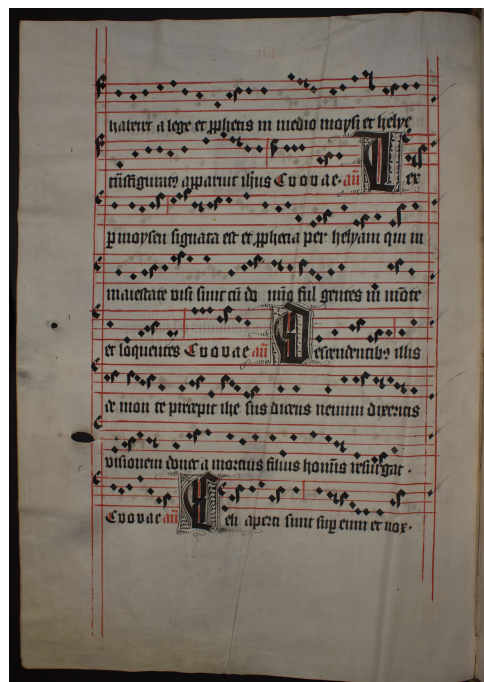 habetur a lege et ꝓphetis in medio moysi et helye
trāsfiguratꝰ apparuit ihesus Euouae. añ Lex
ꝑ moysen signata est et ꝓphecia per helyam qui in
maiestate visi sunt cū do mīo ful gentes in mōte
et loquentes Euouae añ Descendentibꝰ illis
de mon te precepit ihe sus dicens nemini dixeritis
visionem donec a mortuis filius hominis resurgat.
Euouae añ Celi aperti sunt suꝑ eum et vox.